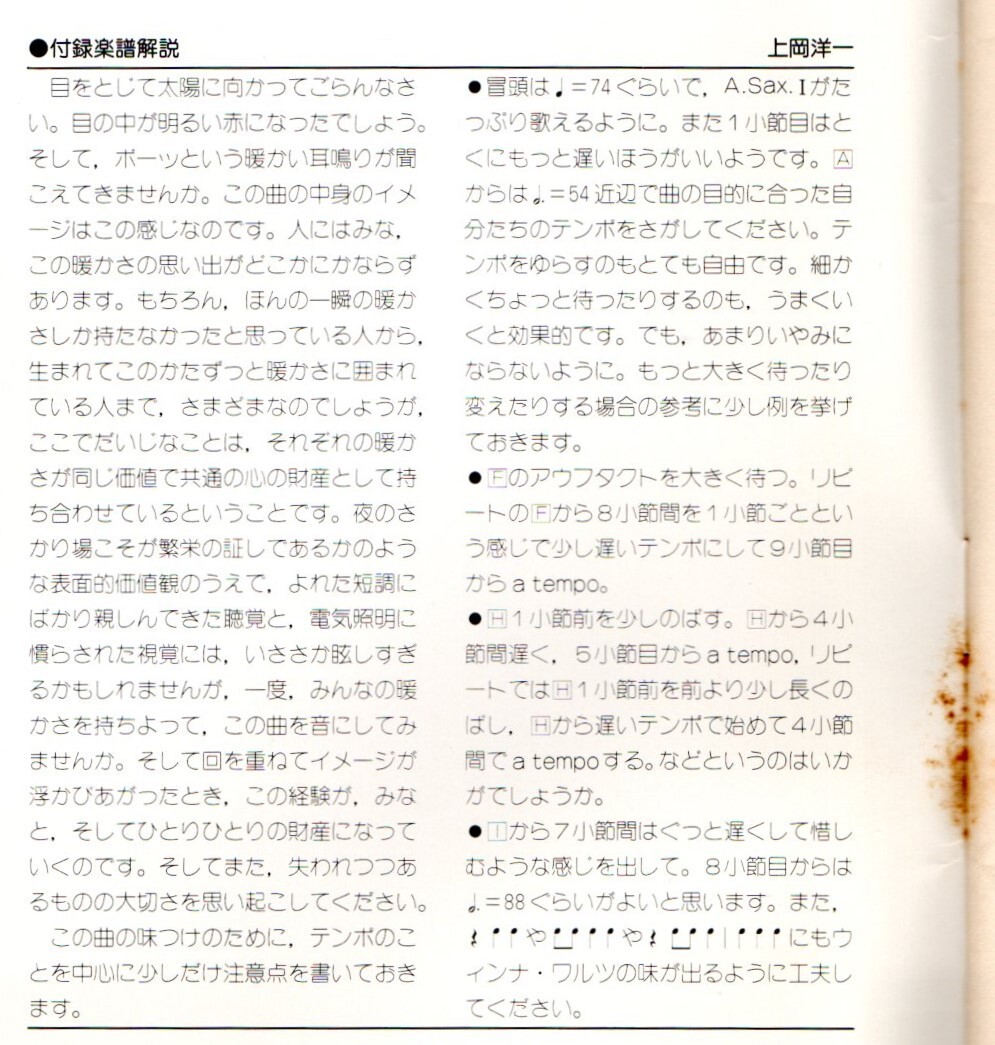 ●付録楽譜解説
上岡洋一
目をとじて太陽に向かってごらんなさ
い。目の中が明るい赤になったでしょう。
そして，ボーッという暖かい耳鳴りが聞
こえてきませんか。この曲の中身のイメ
ージはこの感じなのです。人にはみな，
この暖かさの思い出がどこかにかならず
あります。もちろん，ほんの一瞬の暖か
さしか持たなかったと思っている人から，
生まれてこのかたずっと暖かさに囲まれ
ている人まで，さまざまなのでしょうが，
ここでだいじなことは，それぞれの暖か
さが同じ価値で共通の心の財産として持
ち合わせているということです。夜のさ
かり場こそが繁栄の証しであるかのよう
な表面的価値観のうえで，よれた短調に
ばかり親しんできた聴覚と，電気照明に
慣らされた視覚には，いささか眩しすぎ
るかもしれませんが，一度，みんなの暖
かさを持ちよって，この曲を音にしてみ
ませんか。そして回を重ねてイメージが
浮かびあがったとき，この経験が，みな
と，そしてひとりひとりの財産になって
いくのです。そしてまた，失われつつあ
るものの大切さを思い起こしてください。
この曲の味つけのために，テンポのこ
とを中心に少しだけ注意点を書いておき
ます。
●冒頭は♩=74ぐらいで，A.Sax.Ⅰがた
っぷり歌えるように。また1小節目はと
くにもっと遅いほうがいいようです。A
からは♩.=54近辺で曲の目的に合った自
分たちのテンポをさがしてください。テ
ンポをゆらすのもとても自由です。細か
くちょっと待ったりするのも，うまくい
くと効果的です。でも，あまりいやみに
ならないように。もっと大きく待ったり
変えたりする場合の参考に少し例を挙げ
ておきます。
●Fのアウフタクトを大きく待つ。リピ
ートのFから8小節間を1小節ごととい
う感じで少し遅いテンポにして9小節目
からa tempo。
●H1小節前を少しのばす。Hから4小
節間遅く，5小節目からa tempo，リピ
ートではH1小節前を前より少し長くの
ばし，Hから遅いテンポで始めて4小節
間でa tempoする。などというのはいか
がでしょうか。
●Iから7小節間はぐっと遅くして惜し
むような感じを出して。8小節目からは
♩.=88ぐらいがよいと思います。また，
ややにもウ
ィンナ・ワルツの味が出るように工夫し
てください。